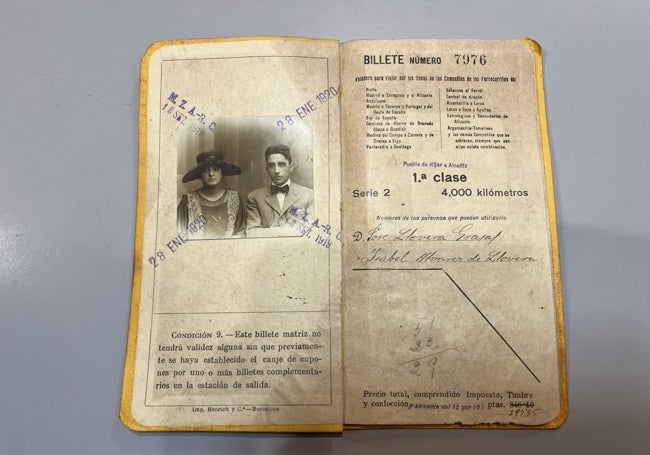 M. Z. A.-R. C.
18 SET. 1919
28 ENE 1920
M. Z. A.-R. C.
18 SET. 1919
28 ENE 1920
CONDICIÓN 9. — Este billete matriz no
tendrá validez alguna sin que previamen-
te se haya establecido el canje de cupo-
nes por uno o más billetes complementa-
rios en la estación de salida.
Imp. Henrich y C.ª - Barcelona
BILLETE NÚMERO 7976
Valedero para viajar por las líneas de las Compañías de los Ferrocarriles del
Norte
Madrid a Zaragoza y a Alicante
Andaluces
Madrid a Cáceres y Portugal y del
Oeste de España
Sur de España
Caminos de Hierro de Granada
(Baza a Guadix)
Medina del Campo a Zamora y de
Orense a Vigo
Pontevedra a Santiago
Betanzos al Ferrol
Central de Aragón
Alcantarilla a Lorca
Lorca a Baza y Águilas
Estratégicos y Secundarios de
Alicante
Argamasilla-Tomelloso
y las demás Compañías que se
adhieran, siempre que con
ellas exista combinación.
Puebla de Hijar a Alcañiz
1.ª clase
Serie 2 4,000 kilómetros
Nombres de las personas que pueden utilizarlo
D. José Llovera
Isabel Alvarez de Llovera
51
22
29
Precio total, comprendido Impuesto, Timbre
y confección, ptas.